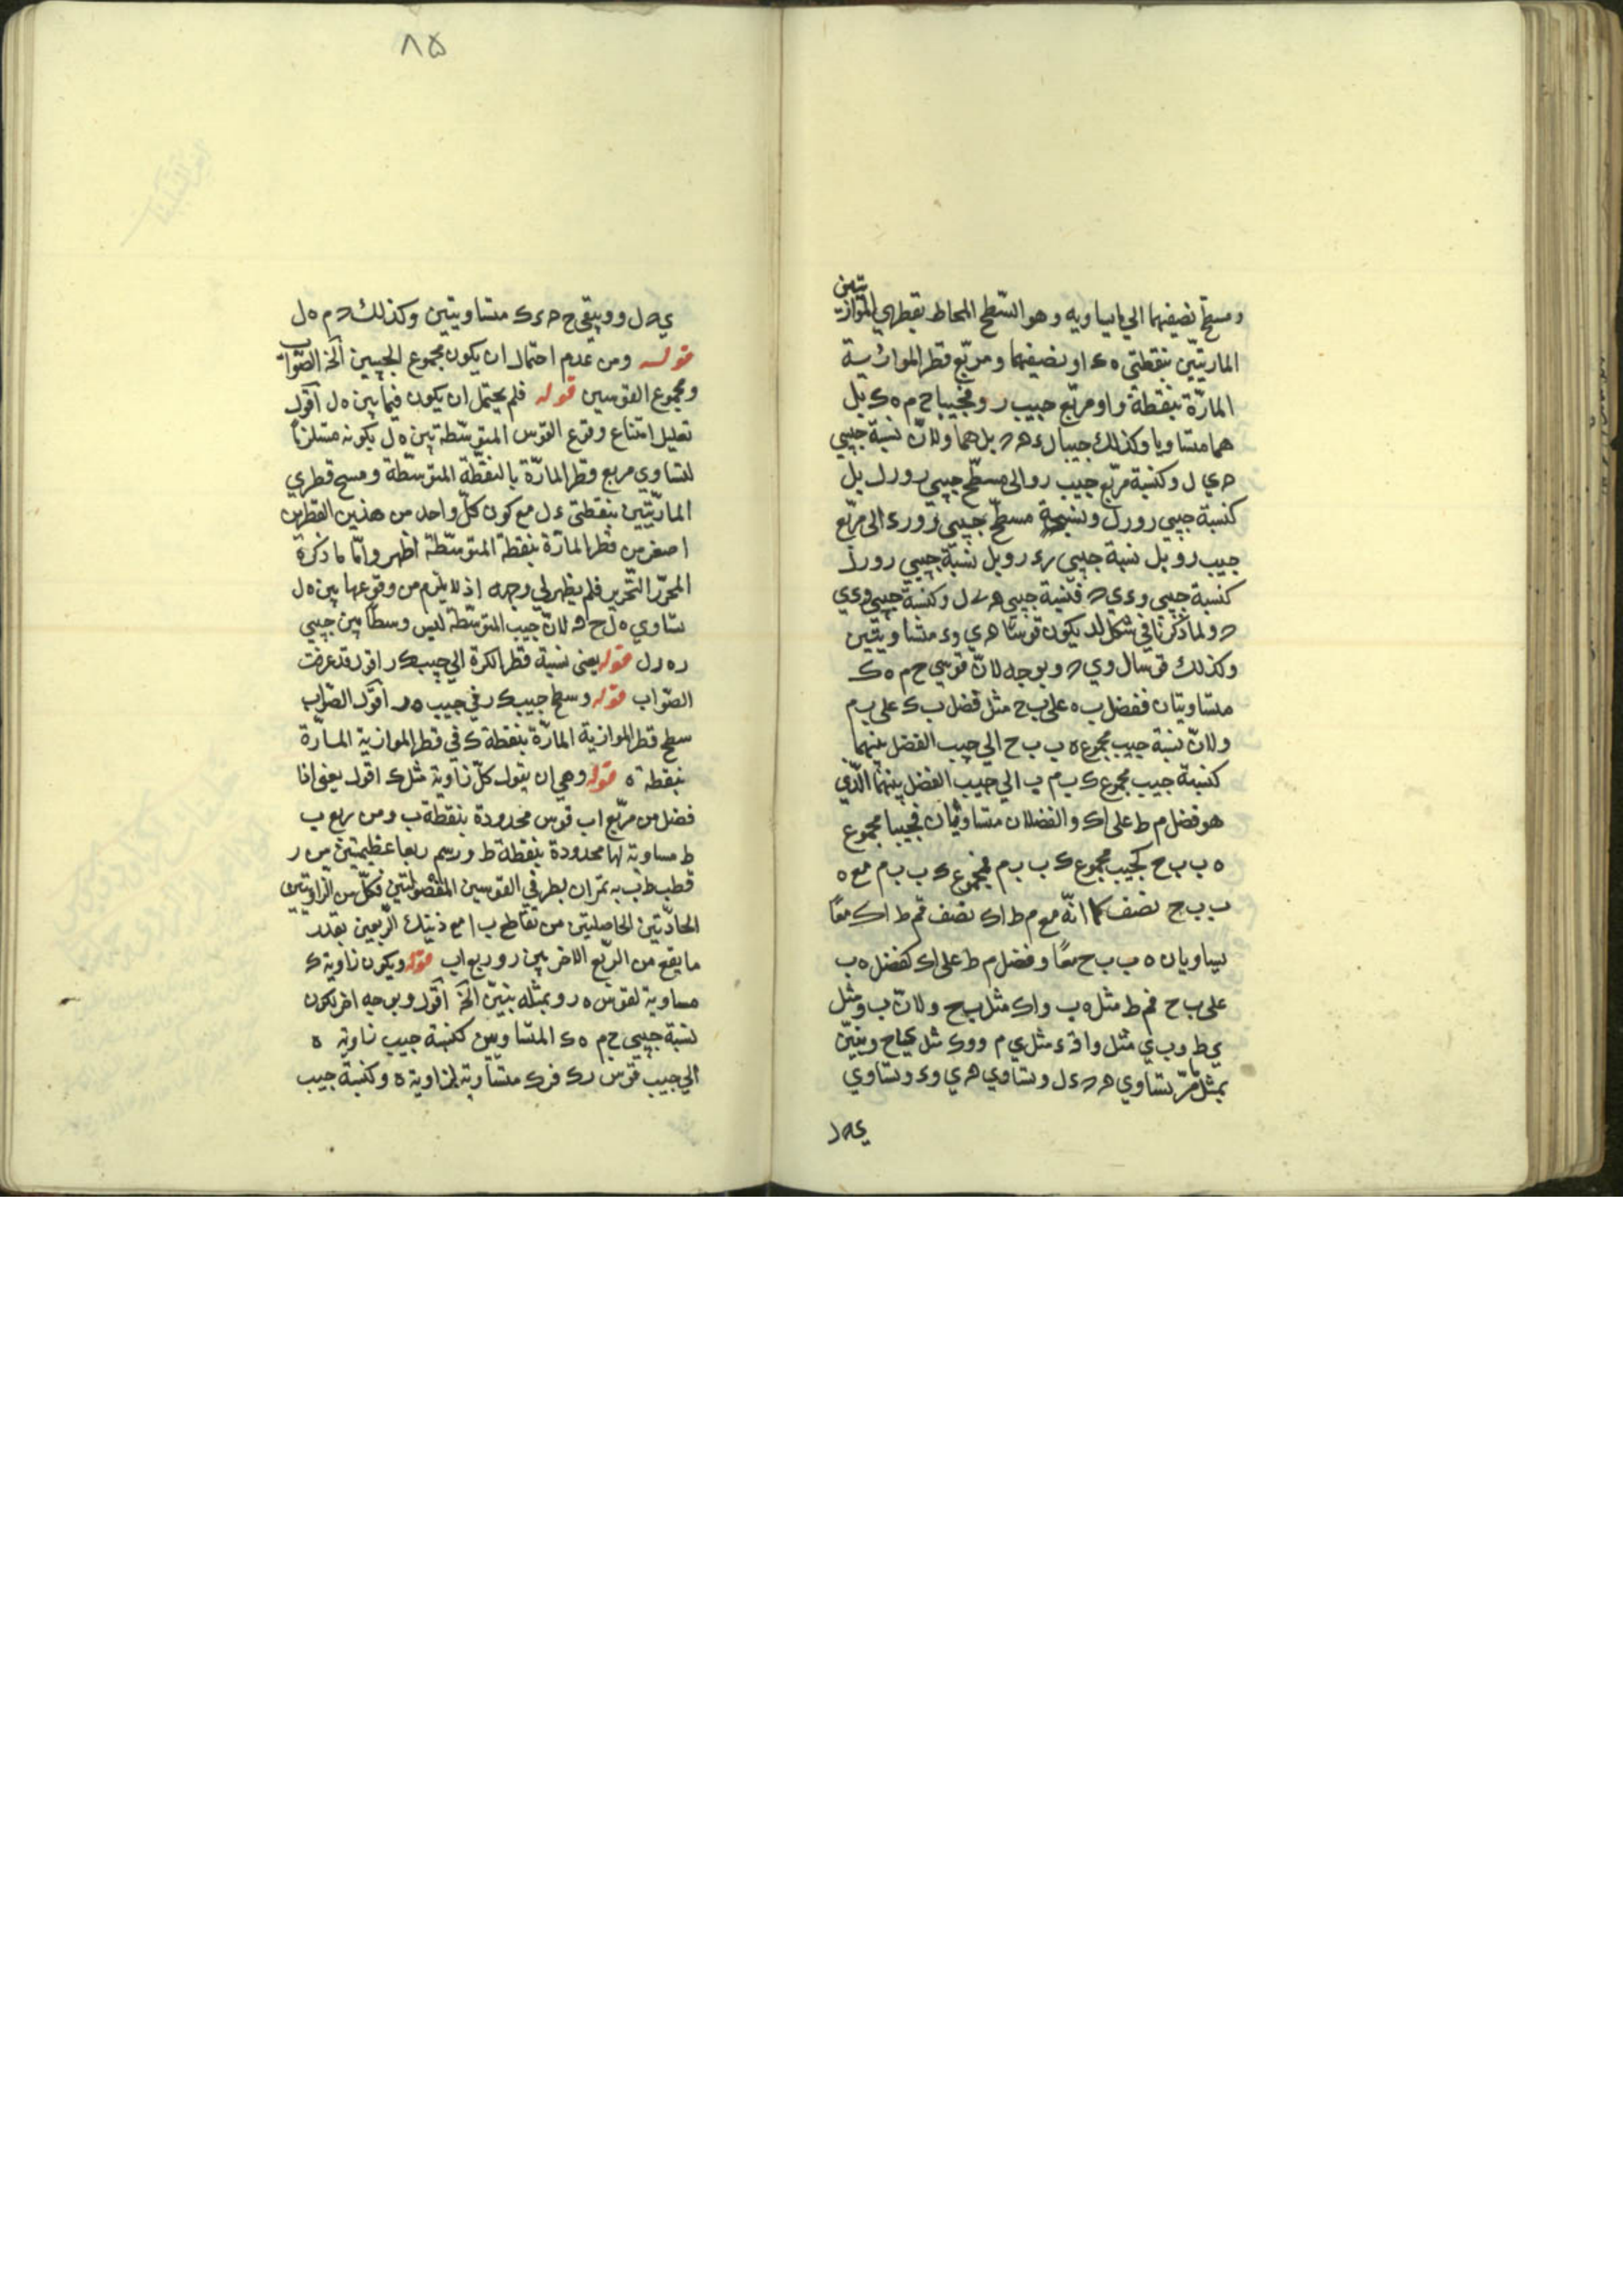 ومسطح نصفيهما الى ما يساويه وهو السّطح المحاط بقطري المتوازيتين
المارتيّن بنقطتى ه ء او نصفيهما ومربّع قطر الموازية
المارّة بنقطة و او مربّع جيب ر و فجيبا ح م ه ك بل
هما متساويا وكذلك جيبا ل ء ه ح بل هما ولانّ نسبة جيبي
ح ي ل وكنسبة مربّع جيب ر و الى مسطّح جيبي ر و ر ل بل
كنسبة جيبي ر و ر ل ونسبة مسطّح جيبي ر و ر ء الى مربّع
جيب ر و بل نسبة جيبي ر ء ر و بل نسبة جيبي ر و ر ل
كنسبة جيبي و ء ي ح فنسبة جيبي ل وكنسبة جيبي و ء ي
ح ولما ذكرنا في شكل لد يكون قوسا ه ي و ء متساويتين
وكذلك قوسا ل و ي ح وبوجه لانّ قوسي ح م ه ك
متساويتان ففضل ب ه على ب ح مثل فضل ب ك على ب م
ولانّ نسبة جيب مجموع ه ب ب ح الى جيب الفضل بينهما
كنسبة جيب مجموع ك ب م ب الى جيب الفضل بينهما الّذي
هو فضل م ط على ا ك والفضلان متساويان فجيبا مجموع
ه ب ب ح كجيب مجموع ك ب ب م فمجموع ك ب ب م مع ه
ب ب ح نصف كما انّه مع م ط ا ك نصف فم ط ا ك معًا
يساويان ه ب ب ح معًا وفضل م ط على ا ك كفضل ه ب
على ب ح فم ط مثل ه ب و ا ك مثل ب ح ولانّ ب و مثل
ي ط و ب ي مثل و ا ف ء مثل ي م و و ك مثل ي ح وتبيّن
بمثل ما مرّ تساوي ه ح ء ل وتساوي ه ي و ء وتساوي
ي ح ل
٨٥
ي ح ل و ويبقى ح ح ء ك متساويتين وكذلك ح م ه ل
قوله ومن عدم احتمال ان يكون مجموع الجيبين الخ الصّواب
ومجموع القوسين قوله فلم يحتمل ان يكون فيما بين ه ل اقول
تعليل امتناع وقوع القوس المتوسّطة بين ه ل بكونه مستلزمًا
لتساوي مربع قطر المارّة بالنقطة المتوسّطة ومسطح قطري
المارّيتين بنقطتى ء ل مع كون كلّ واحد من هذين القطرين
اصغر من قطر المارّة بنقطة المتوسّطة اظهر وامّا ما ذكره
المحرّر التّحرير فلم يظهر لي وجهه اذ لا يلزم من وقوعها بين ه ل
تساوي ه ل ح لانّ جيب المتوسّطة ليس وسطًا بين جيبي
ر ه ر ل قوله يعنى نسبة قطر الكرة الى جيب ك ر اقول قد عرفت
الصّواب قوله وسطح جيب ك ر في جيب ه ر اقول الصّواب
سطح قطر الموازية المارّة بنقطة ك في قطر الموازية المارّة
بنقطة ه قوله وهي ان يتول كلّ زاوية مثل ك اقول يعنى اذا
فضل من مربّع ا ب قوس محدودة بنقطة ب ومن ربع ب
ط مساوية لها محدودة بنقطة ط ورسم ربعا عظيمتين من ر
قطب ط ب به يمرّان بطرفي القوسين المفصولتين فكلّ من الزّاويتين
الحادّتين الحاصلتين من تقاطع ب ا مع ذينك الرّبعين بقدر
ما يقع من الرّبع الاخر بين ر و ربع ا ب قوله ويكون زاوية ك
مساوية لقوس ه ر وبمثله يتبيّن الخ اقول وبوجه اخر لكون
نسبة جيبي ح م ه ك المتساويين كنسبة جيب زاوية ه
الى جيب قوس ر ك فر ك متساوية لزاوية ه وكنسبة جيب